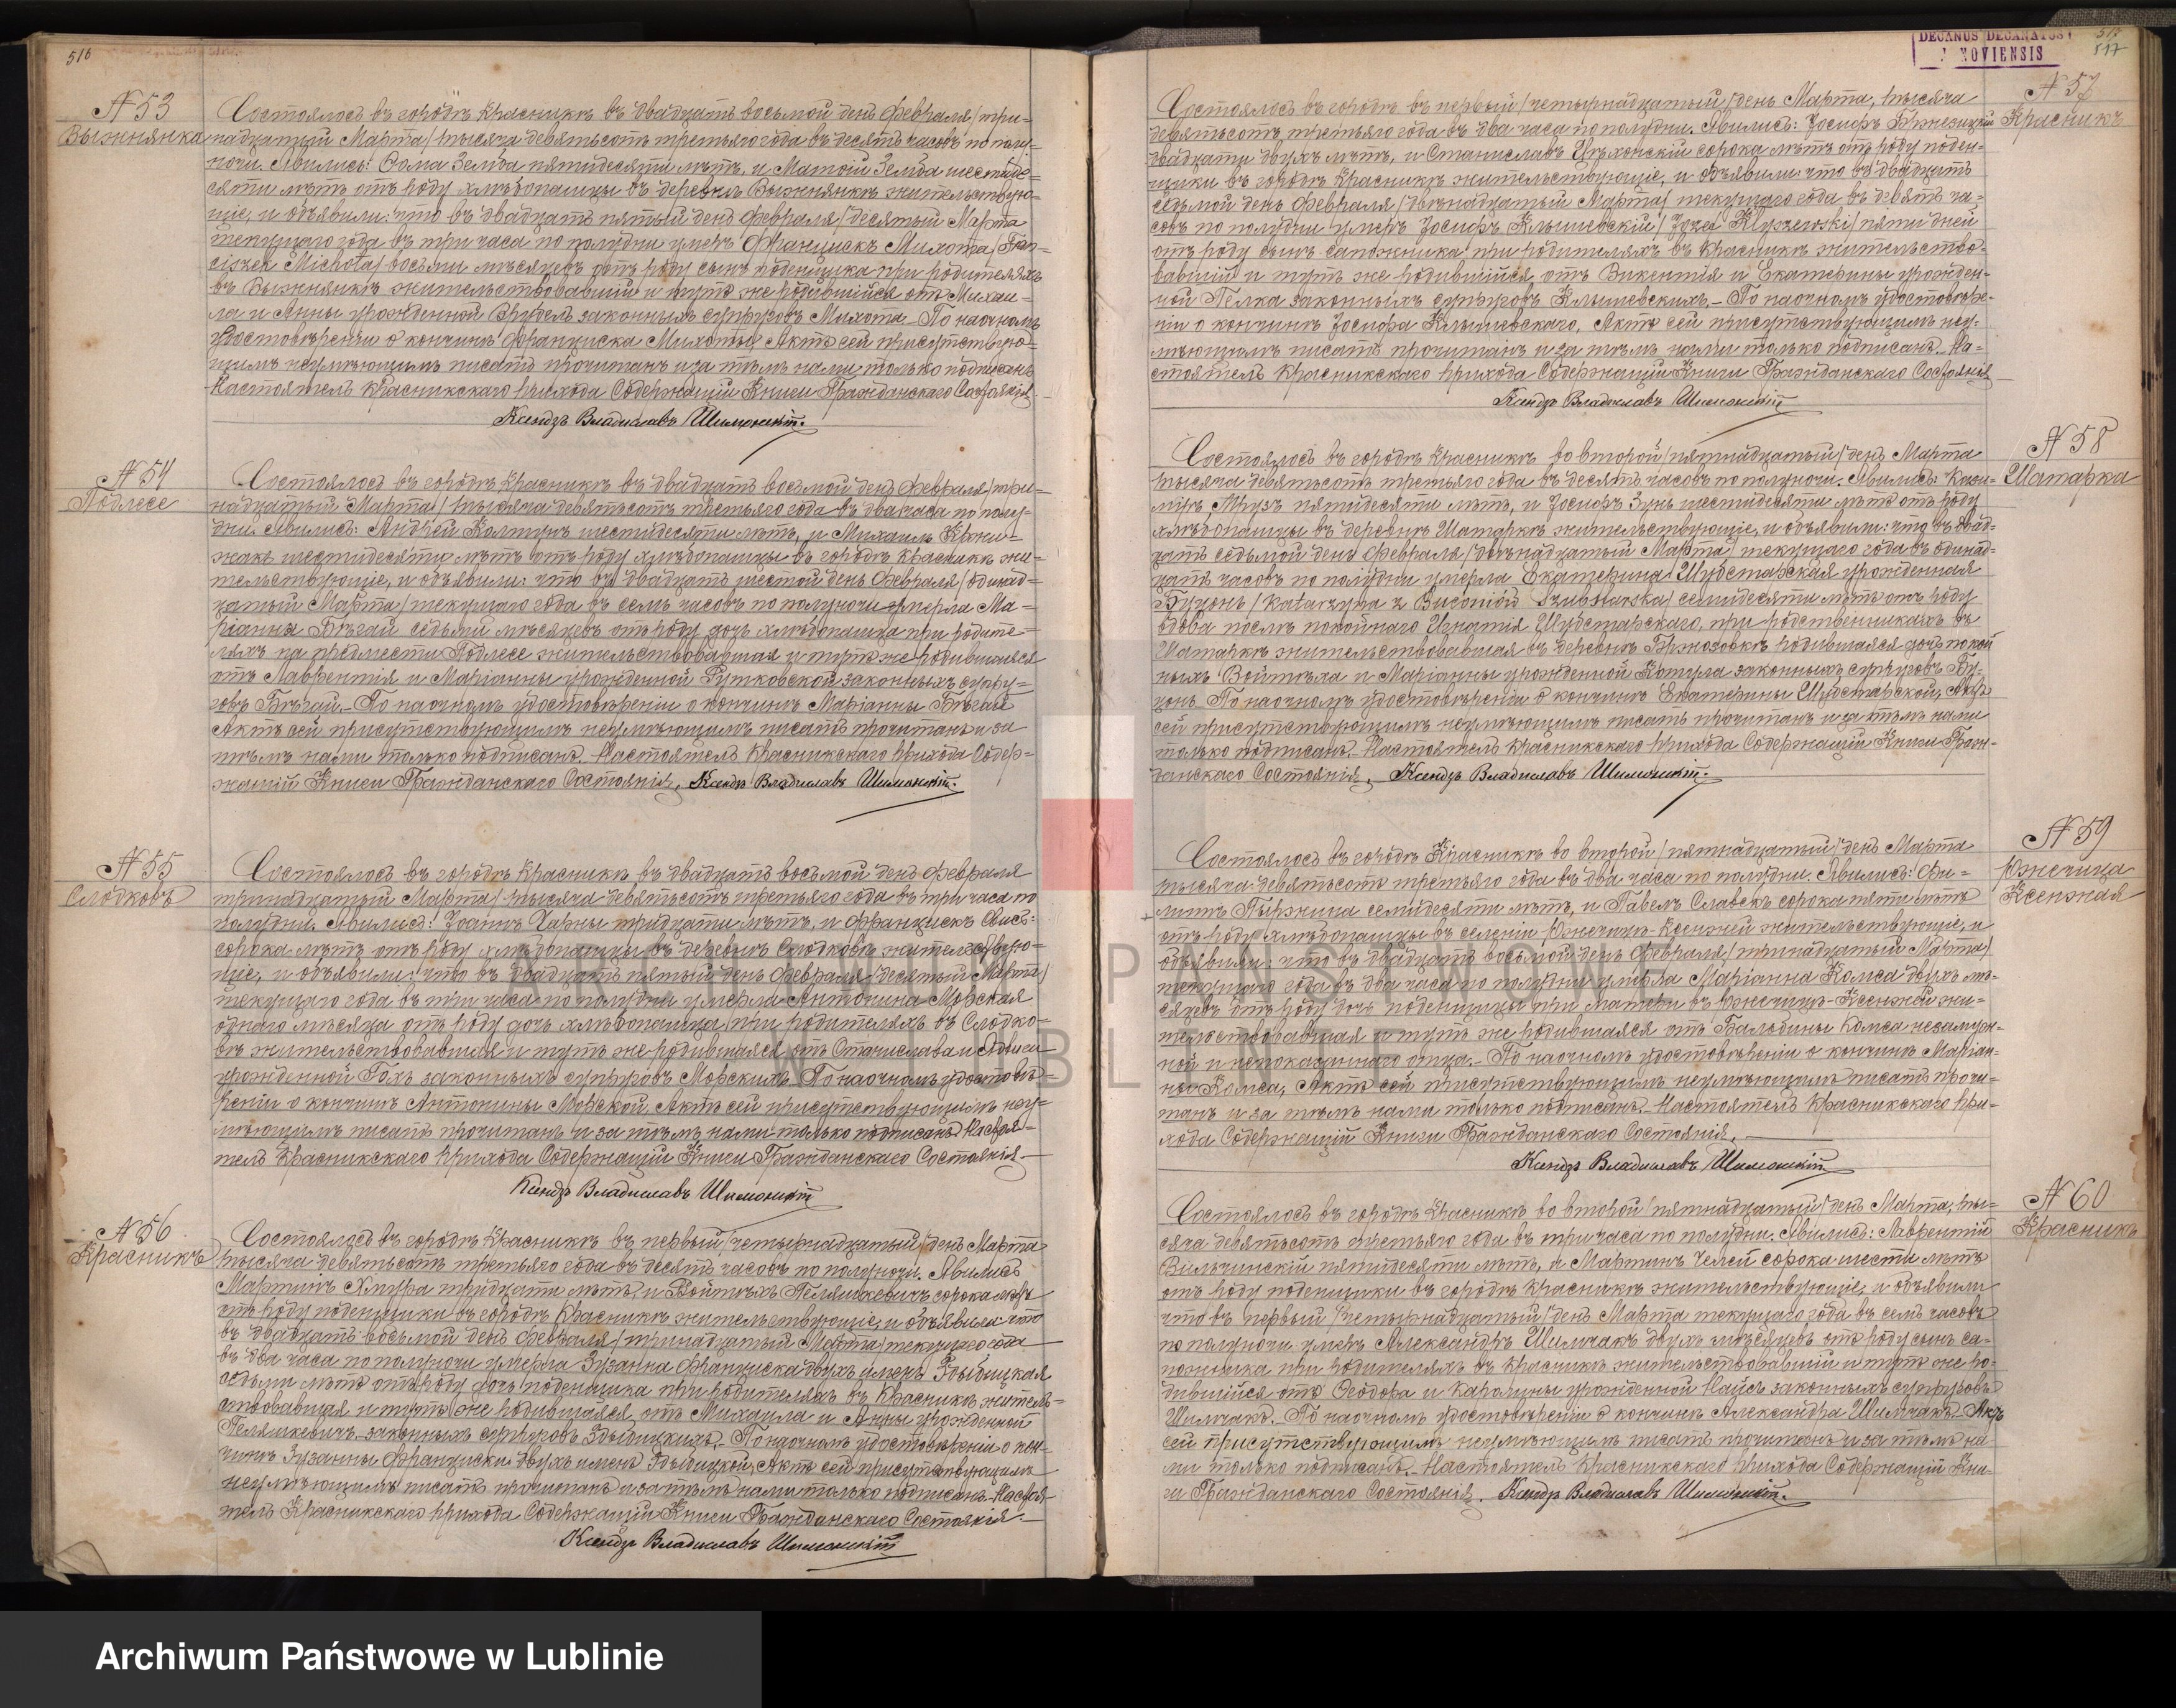 516
№ 53
Выжнянка
Состоялось въ городѣ Красникѣ въ двадцать восьмой день Февраля /три-
надцатый Марта/ тысяча девятьсотъ третьяго года въ десять часовъ по полу-
ночи. Явились: Ѳома Земба пятидесяти лѣтъ, и Матѳій Земба шестиде-
сяти лѣтъ отъ роду хлѣбопашцы въ деревнѣ Выжнянкѣ жительствую-
щіе, и объявили: что въ двадцать пятый день Февраля /десятый Марта
текущаго года въ три часа по полудни умеръ Францискъ Михота /Fran-
ciszek Michota/ восьми мѣсяцевъ отъ роду сынъ поденщика при родителяхъ
въ Выжнянкѣ жительствовавшій и тутъ же родившійся отъ Михаи-
ла и Анны урожденной законныхъ супруговъ Михота. По наочномъ
удостовѣреніи о кончинѣ Франциска Михоты, Актъ сей присутствую-
щимъ неумѣющимъ писать прочитанъ и за тѣмъ нами только подписанъ
Настоятель Красникскаго прихода Содержащій Книги Гражданскаго Состоянія.
Ксендзъ Владиславъ
№ 54
Подлесе
Состоялось въ городѣ Красникѣ въ двадцать восьмой день Февраля /три-
надцатый Марта/ тысяча девятьсотъ третьяго года въ два часа по полу-
дни. Явились: Андрей Колтунъ шестидесяти лѣтъ, и Михаилъ
шестидесяти лѣтъ отъ роду хлѣбопашцы въ городѣ Красникѣ жи-
тельствующіе, и объявили: что въ двадцать шестой день Февраля /одинад-
цатый Марта/ текущаго года въ семь часовъ по полуночи умерла Ма-
ріанна Бѣгай седьми мѣсяцевъ отъ роду дочь хлѣбопашца при родите-
ляхъ на предмѣстіи Подлесе жительствовавшая и тутъ же родившаяся
отъ Лаврентія и Маріанны урожденной Гутковской законныхъ супру-
говъ Бѣгай. По наочномъ удостовѣреніи о кончинѣ Маріанны Бѣгай
Актъ сей присутствующимъ неумѣющимъ писать прочитанъ и за
тѣмъ нами только подписанъ. Настоятель Красникскаго прихода Содер-
жащій Книги Гражданскаго Состоянія. Ксендзъ Владиславъ
№ 55
Слодковъ
Состоялось въ городѣ Красникѣ въ двадцать восьмой день Февраля
тринадцатый Марта/ тысяча девятьсотъ третьяго года въ три часа по
полудни. Явились: Іоаннъ Чарны тридцати лѣтъ, и Францискъ
сорока лѣтъ отъ роду хлѣбопашцы въ деревнѣ Слодковѣ жительствую-
щіе, и объявили: что въ двадцать пятый день Февраля /десятый Марта/
текущаго года въ три часа по полудни умерла Антонина Морская
одного мѣсяца отъ роду дочь хлѣбопашца при родителяхъ въ Слодко-
вѣ жительствовавшая и тутъ же родившаяся отъ Станислава и
урожденной законныхъ супруговъ Морскихъ. По наочномъ удостовѣ-
реніи о кончинѣ Антонины Морской, Актъ сей присутствующимъ неу-
мѣющимъ писать прочитанъ и за тѣмъ нами только подписанъ. Настоя-
тель Красникскаго прихода Содержащій Книги Гражданскаго Состоянія.
Ксендзъ Владиславъ
№ 56
Красникъ
Состоялось въ городѣ Красникѣ въ первый /четырнадцатый/ день Марта
тысяча девятьсотъ третьяго года въ десять часовъ по полуночи. Явились
Мартинъ Хмура тридцати лѣтъ, и Войтѣхъ Пеляшкевичъ сорока лѣтъ
отъ роду поденщики въ городѣ Красникѣ жительствующіе, и объявили: что
въ двадцать восьмой день Февраля /тринадцатый Марта/ текущаго года
въ два часа по полуночи умерла Зузанна Франциска двухъ именъ
седьми лѣтъ отъ роду дочь поденщика при родителяхъ въ Красникѣ житель-
ствовавшая и тутъ же родившаяся отъ Михаила и Анны урожденной
Пеляшкевичъ законныхъ супруговъ По наочномъ удостовѣреніи о кон-
чинѣ Зузанны Франциски двухъ именъ Актъ сей присутствующимъ
неумѣющимъ писать прочитанъ и за тѣмъ нами только подписанъ. Настоя-
тель Красникскаго прихода Содержащій Книги Гражданскаго Состоянія.
Ксендзъ Владиславъ
DECANUS DECANATUS
NOVIENSIS
517
№ 57
Красникъ
Состоялось въ городѣ въ первый /четырнадцатый/ день Марта, тысяча
девятьсотъ третьяго года въ два часа по полудни. Явились: Іосифъ
двадцати двухъ лѣтъ, и Станиславъ сорока лѣтъ отъ роду поден-
щики въ городѣ Красникѣ жительствующіе, и объявили: что въ двадцать
седьмой день Февраля /двѣнадцатый Марта/ текущаго года въ девять ча-
совъ по полудни умеръ Іосифъ Клышевскій /Józef пяти дней
отъ роду сынъ сапожника при родителяхъ въ Красникѣ жительство-
вавшій и тутъ же родившійся отъ Викентія и Екатерины урожден-
ной Пелка законныхъ супруговъ Клышевскихъ. По наочномъ удостовѣре-
ніи о кончинѣ Іосифа Клышевскаго, Актъ сей присутствующимъ неу-
мѣющимъ писать прочитанъ и за тѣмъ нами только подписанъ. На-
стоятель Красникскаго прихода Содержащій Книги Гражданскаго Состоянія
Ксендзъ Владиславъ
№ 58
Шатарка
Состоялось въ городѣ Красникѣ во второй /пятнадцатый/ день Марта
тысяча девятьсотъ третьяго года въ десять часовъ по полуночи. Явились: Кази-
миръ пятидесяти лѣтъ, и Іосифъ Зунь шестидесяти лѣтъ отъ роду
хлѣбопашцы въ деревнѣ Шатаркѣ жительствующіе, и объявили: что въ двад-
цать седьмой день Февраля /двѣнадцатый Марта/ текущаго года въ одинад-
цать часовъ по полудни умерла Екатерина Шубстарская урожденная
Буцонь /Katarzyna z Buconiów Szubstarska/ семидесяти лѣтъ отъ роду
вдова послѣ покойнаго Игнатія Шубстарскаго, при родственникахъ въ
Шатаркѣ жительствовавшая въ деревнѣ родившаяся дочь покой
ныхъ Войтѣха и Маріанны урожденной законныхъ супруговъ Бу-
цонь. По наочномъ удостовѣреніи о кончинѣ Екатерины Шубстарской, Актъ
сей присутствующимъ неумѣющимъ писать прочитанъ и за тѣмъ нами
только подписанъ. Настоятель Красникскаго прихода Содержащій Книги Граж-
данскаго Состоянія. Ксендзъ Владиславъ
№ 59
Ржечица
Ксенжая
Состоялось въ городѣ Красникѣ во второй /пятнадцатый/ день Марта
тысяча девятьсотъ третьяго года въ два часа по полудни. Явились: Фи-
липъ семидесяти лѣтъ, и Павелъ сорока пяти лѣтъ
отъ роду хлѣбопашцы въ селеніи Ржечицѣ-Ксенжей жительствующіе, и
объявили: что въ двадцать восьмой день Февраля /тринадцатый Марта/
текущаго года въ два часа по полудни умерла Маріанна Комса двухъ мѣ-
сяцевъ отъ роду дочь поденщицы при матери въ Ржечицѣ-Ксенжей жи-
тельствовавшая и тутъ же родившаяся отъ Бальбины Комса незамуж-
ной и непоказаннаго отца. По наочномъ удостовѣреніи о кончинѣ Маріан-
ны Комса, Актъ сей присутствующимъ неумѣющимъ писать прочи-
танъ и за тѣмъ нами только подписанъ. Настоятель Красникскаго при-
хода Содержащій Книги Гражданскаго Состоянія.
Ксендзъ Владиславъ
№ 60
Красникъ
Состоялось въ городѣ Красникѣ во второй /пятнадцатый/ день Марта, ты-
сяча девятьсотъ третьяго года въ три часа по полудни. Явились: Лаврентій
Вильчинскій пятидесяти лѣтъ, и Мартинъ Челей сорока шести лѣтъ
отъ роду поденщики въ городѣ Красникѣ жительствующіе, и объявили
что въ первый /четырнадцатый/ день Марта текущаго года въ семь часовъ
по полуночи умеръ Александръ Шимчакъ двухъ мѣсяцевъ отъ роду сынъ са-
пожника при родителяхъ въ Красникѣ жительствовавшій и тутъ же ро-
дившійся отъ Ѳеодора и Каролины урожденной законныхъ супруговъ
Шимчакъ. По наочномъ удостовѣреніи о кончинѣ Александра Шимчакъ, Актъ
сей присутствующимъ неумѣющимъ писать прочитанъ и за тѣмъ на-
ми только подписанъ. Настоятель Красникскаго прихода Содержащій Кни-
ги Гражданскаго Состоянія. Ксендзъ Владиславъ
ARCHIWUM PAŃSTWOWE
W LUBLINIE
Archiwum Państwowe w Lublinie